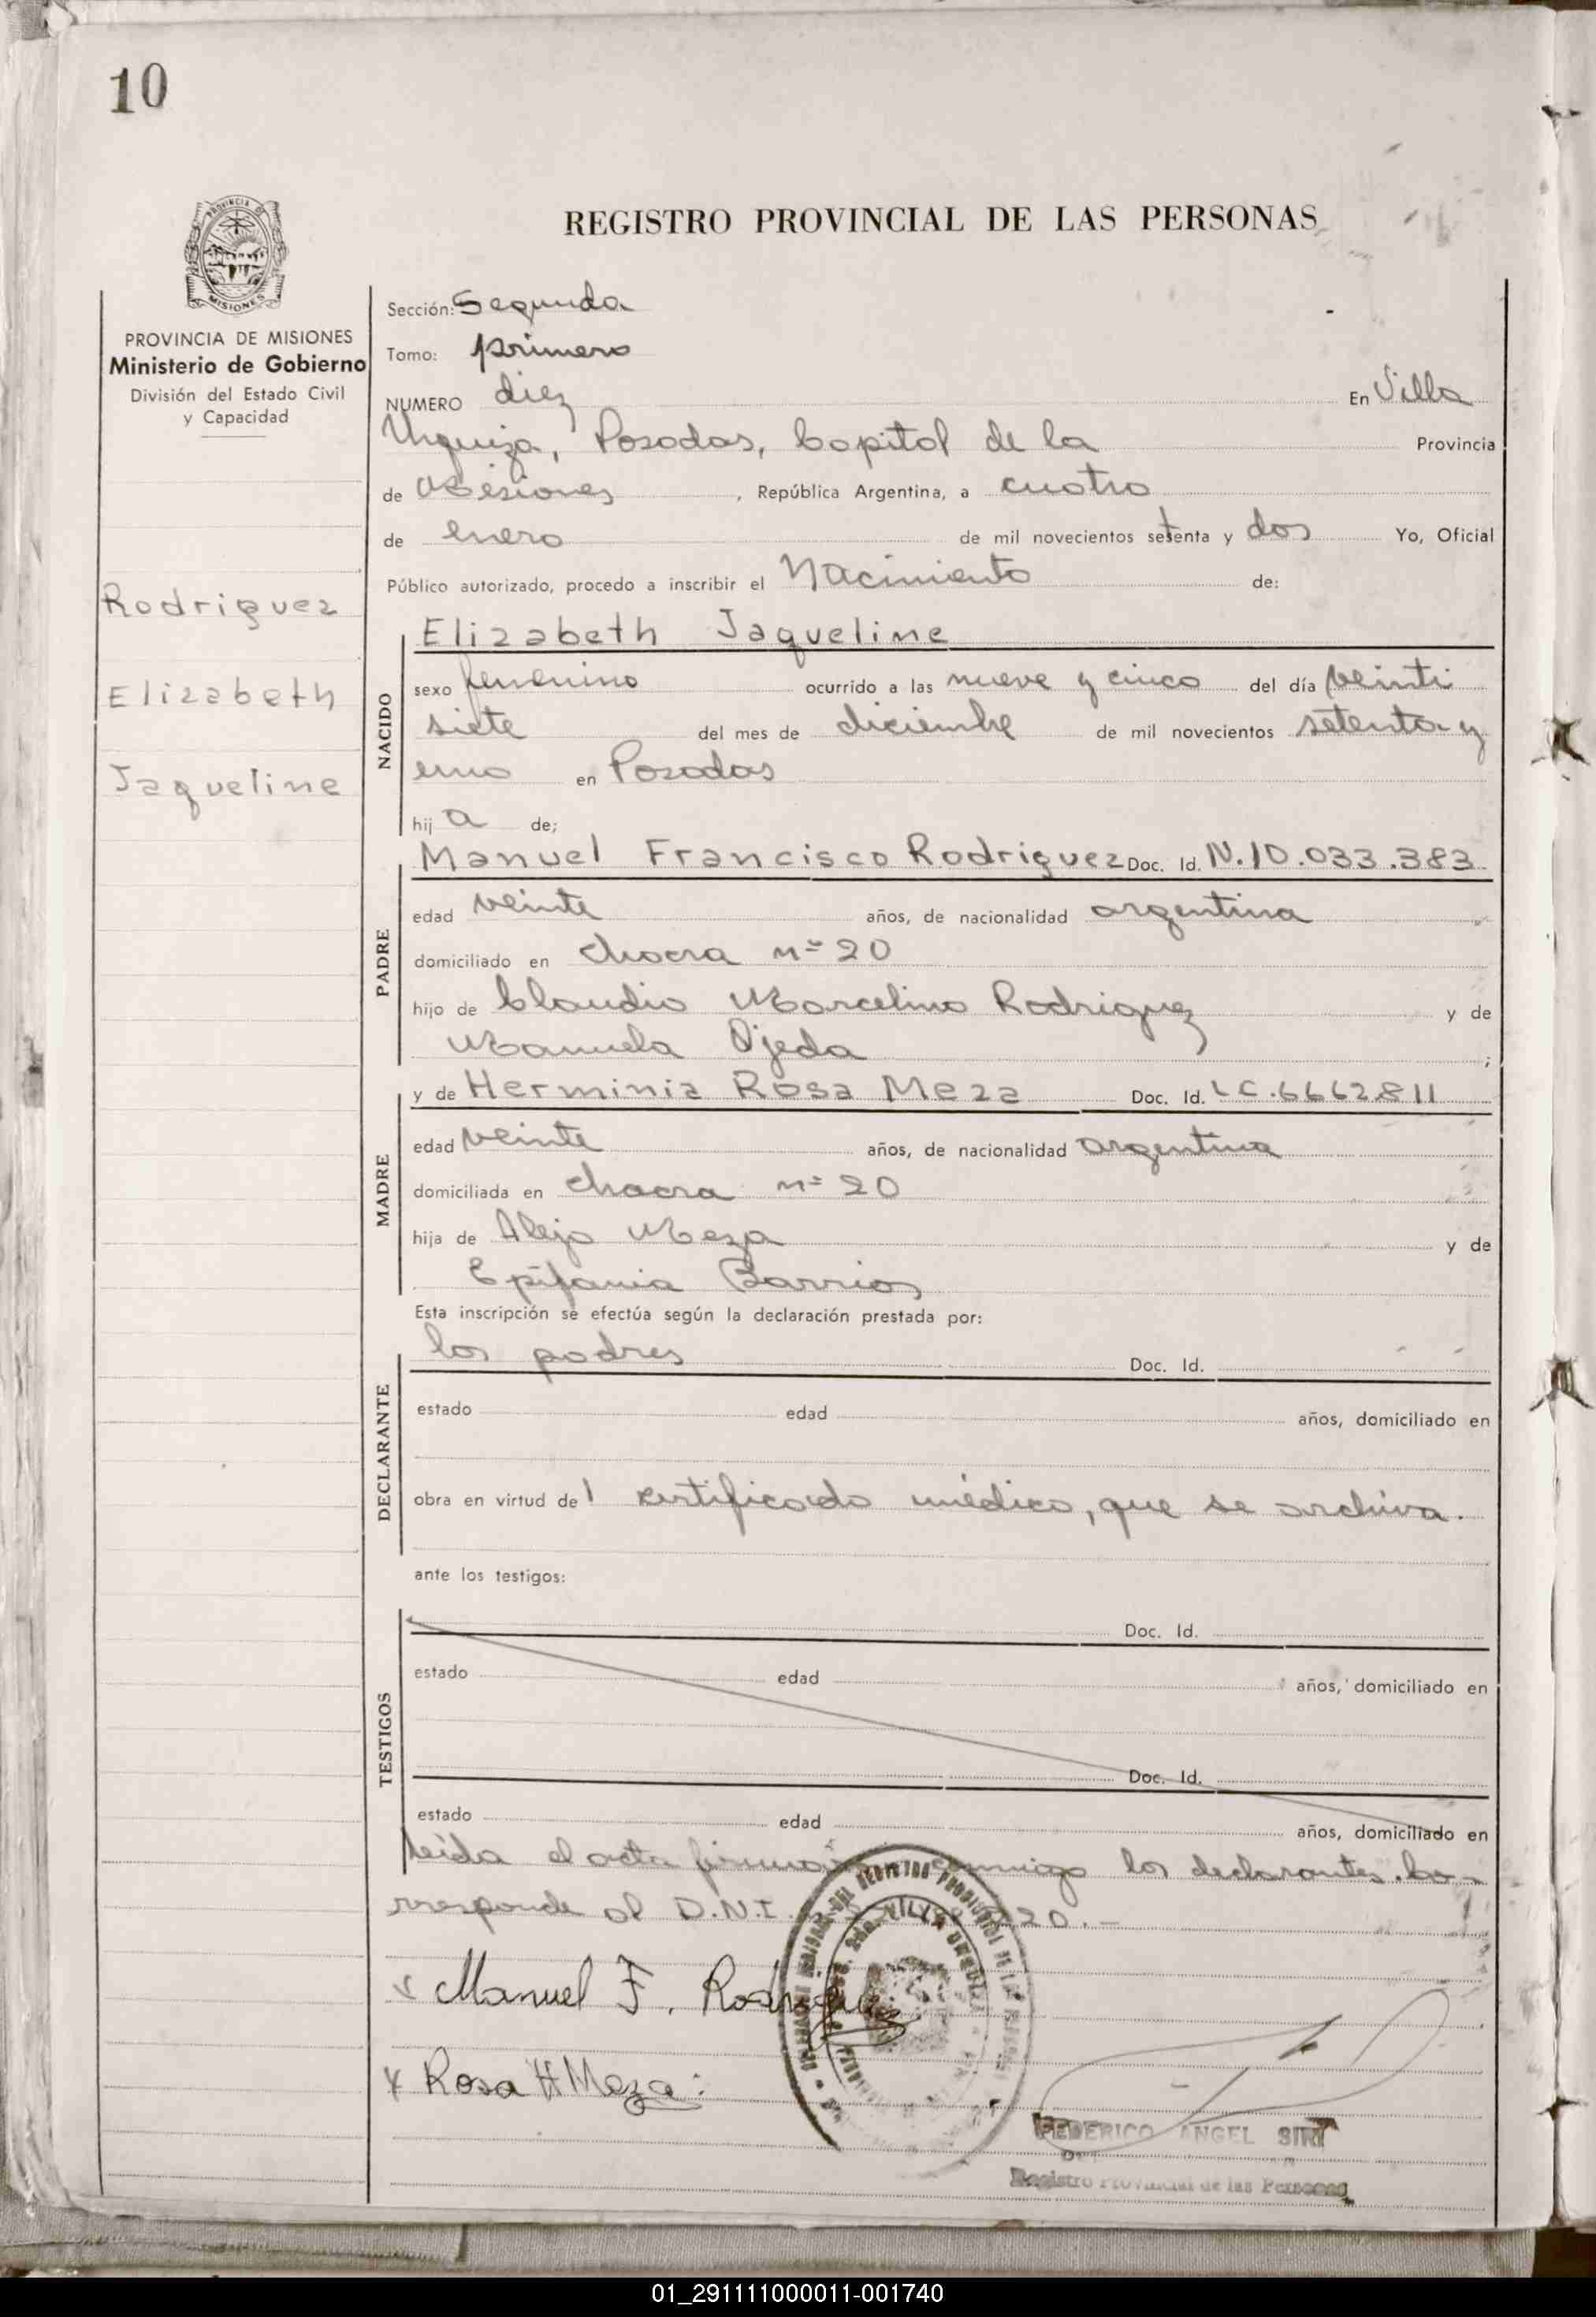 10
PROVINCIA DE
MISIONES
REGISTRO PROVINCIAL DE LAS PERSONAS
PROVINCIA DE MISIONES
Ministerio de Gobierno
División del Estado Civil
y Capacidad
Rodriguez
Elizabeth
Jaqueline
Sección: Segunda
Tomo: primero
NUMERO diez En Villa
Urquiza, Posadas, Capital de la Provincia
de Misiones, República Argentina, a cuatro
de enero de mil novecientos setenta y dos Yo, Oficial
Público autorizado, procedo a inscribir el Nacimiento de:
NACIDO
Elizabeth Jaqueline
sexo femenino ocurrido a las nueve y cinco del día veinti
siete del mes de diciembre de mil novecientos setenta y
uno en Posadas
hij a de;
PADRE
Manuel Francisco Rodriguez Doc. Id. N.10.033.383
edad veinte años, de nacionalidad argentina
domiciliado en chacra nº 20
hijo de Claudio Marcelino Rodriguez y de
Manuela Ojeda ;
MADRE
y de Herminia Rosa Meza Doc. Id. LC.6662811
edad veinte años, de nacionalidad argentina
domiciliada en chacra nº 20
hija de Alejo Meza y de
Epifania Barrios
Esta inscripción se efectúa según la declaración prestada por:
DECLARANTE
los padres Doc. Id.
estado edad años, domiciliado en
obra en virtud del certificado médico, que se archiva.
ante los testigos:
TESTIGOS
Doc. Id.
estado edad años, domiciliado en
Doc. Id.
estado edad años, domiciliado en
Leída el acta firman conmigo los declarantes. Co-
rresponde al D.N.I. 20.-
Manuel F. Rodriguez
Rosa H Meza
VILLA URQUIZA
FEDERICO ANGEL SIRI
Registro Provincial de las Personas
01_291111000011-001740